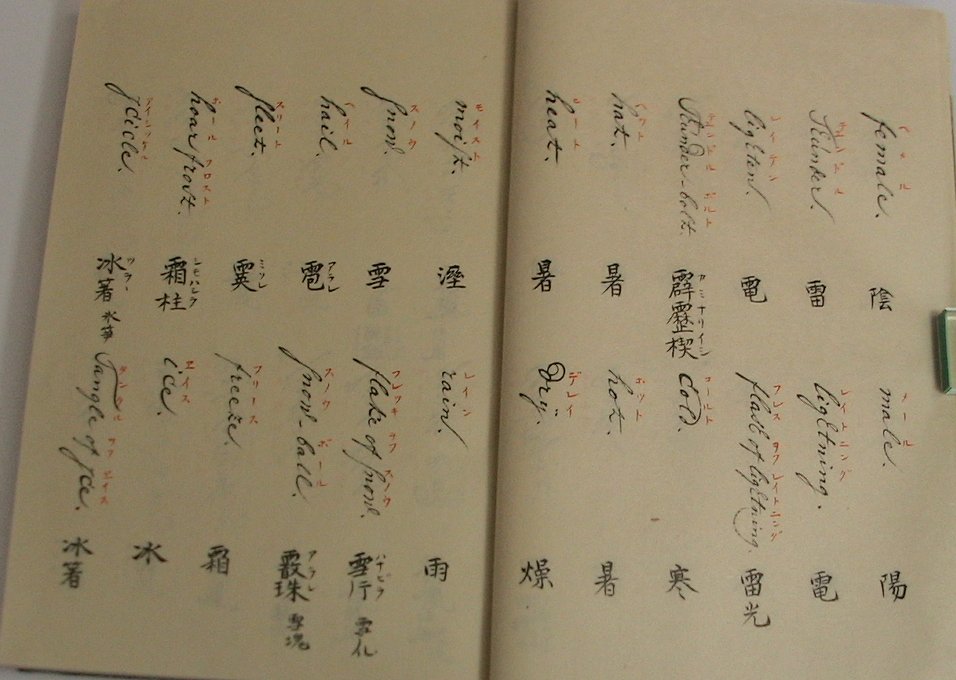 female. 陰 male. メール 陽
Thunker. 雷 lightning. レイトニング 電
lighten. レイテン 電 flash of lightning. フレス ヲフ レイトニング 雷光
Thunder-bolt. 霹靂楔 カミナリイシ cold. コールド 寒
hat. 暑 hot. ホット 暑
heat. ヒート 暑 dry. デレイ 燥
moist. モイスト 溼 rain. レイン 雨
snow. スノウ 雪 flake of snow. フレッキ ヲフ スノウ 雪片 ハナビラ
hail. ヘイル 雹 アラレ snow-ball. スノウ ボール 霰珠 アラレ 雪塊
fleet. スリート 霙 ミゾレ freeze. フリース 霜
hoar frost. ホール フロスト 霜柱 ice. エイス 冰
jcicle. アイシクル 冰著 Tangle of jce. タングル ヲフ エイス 冰著